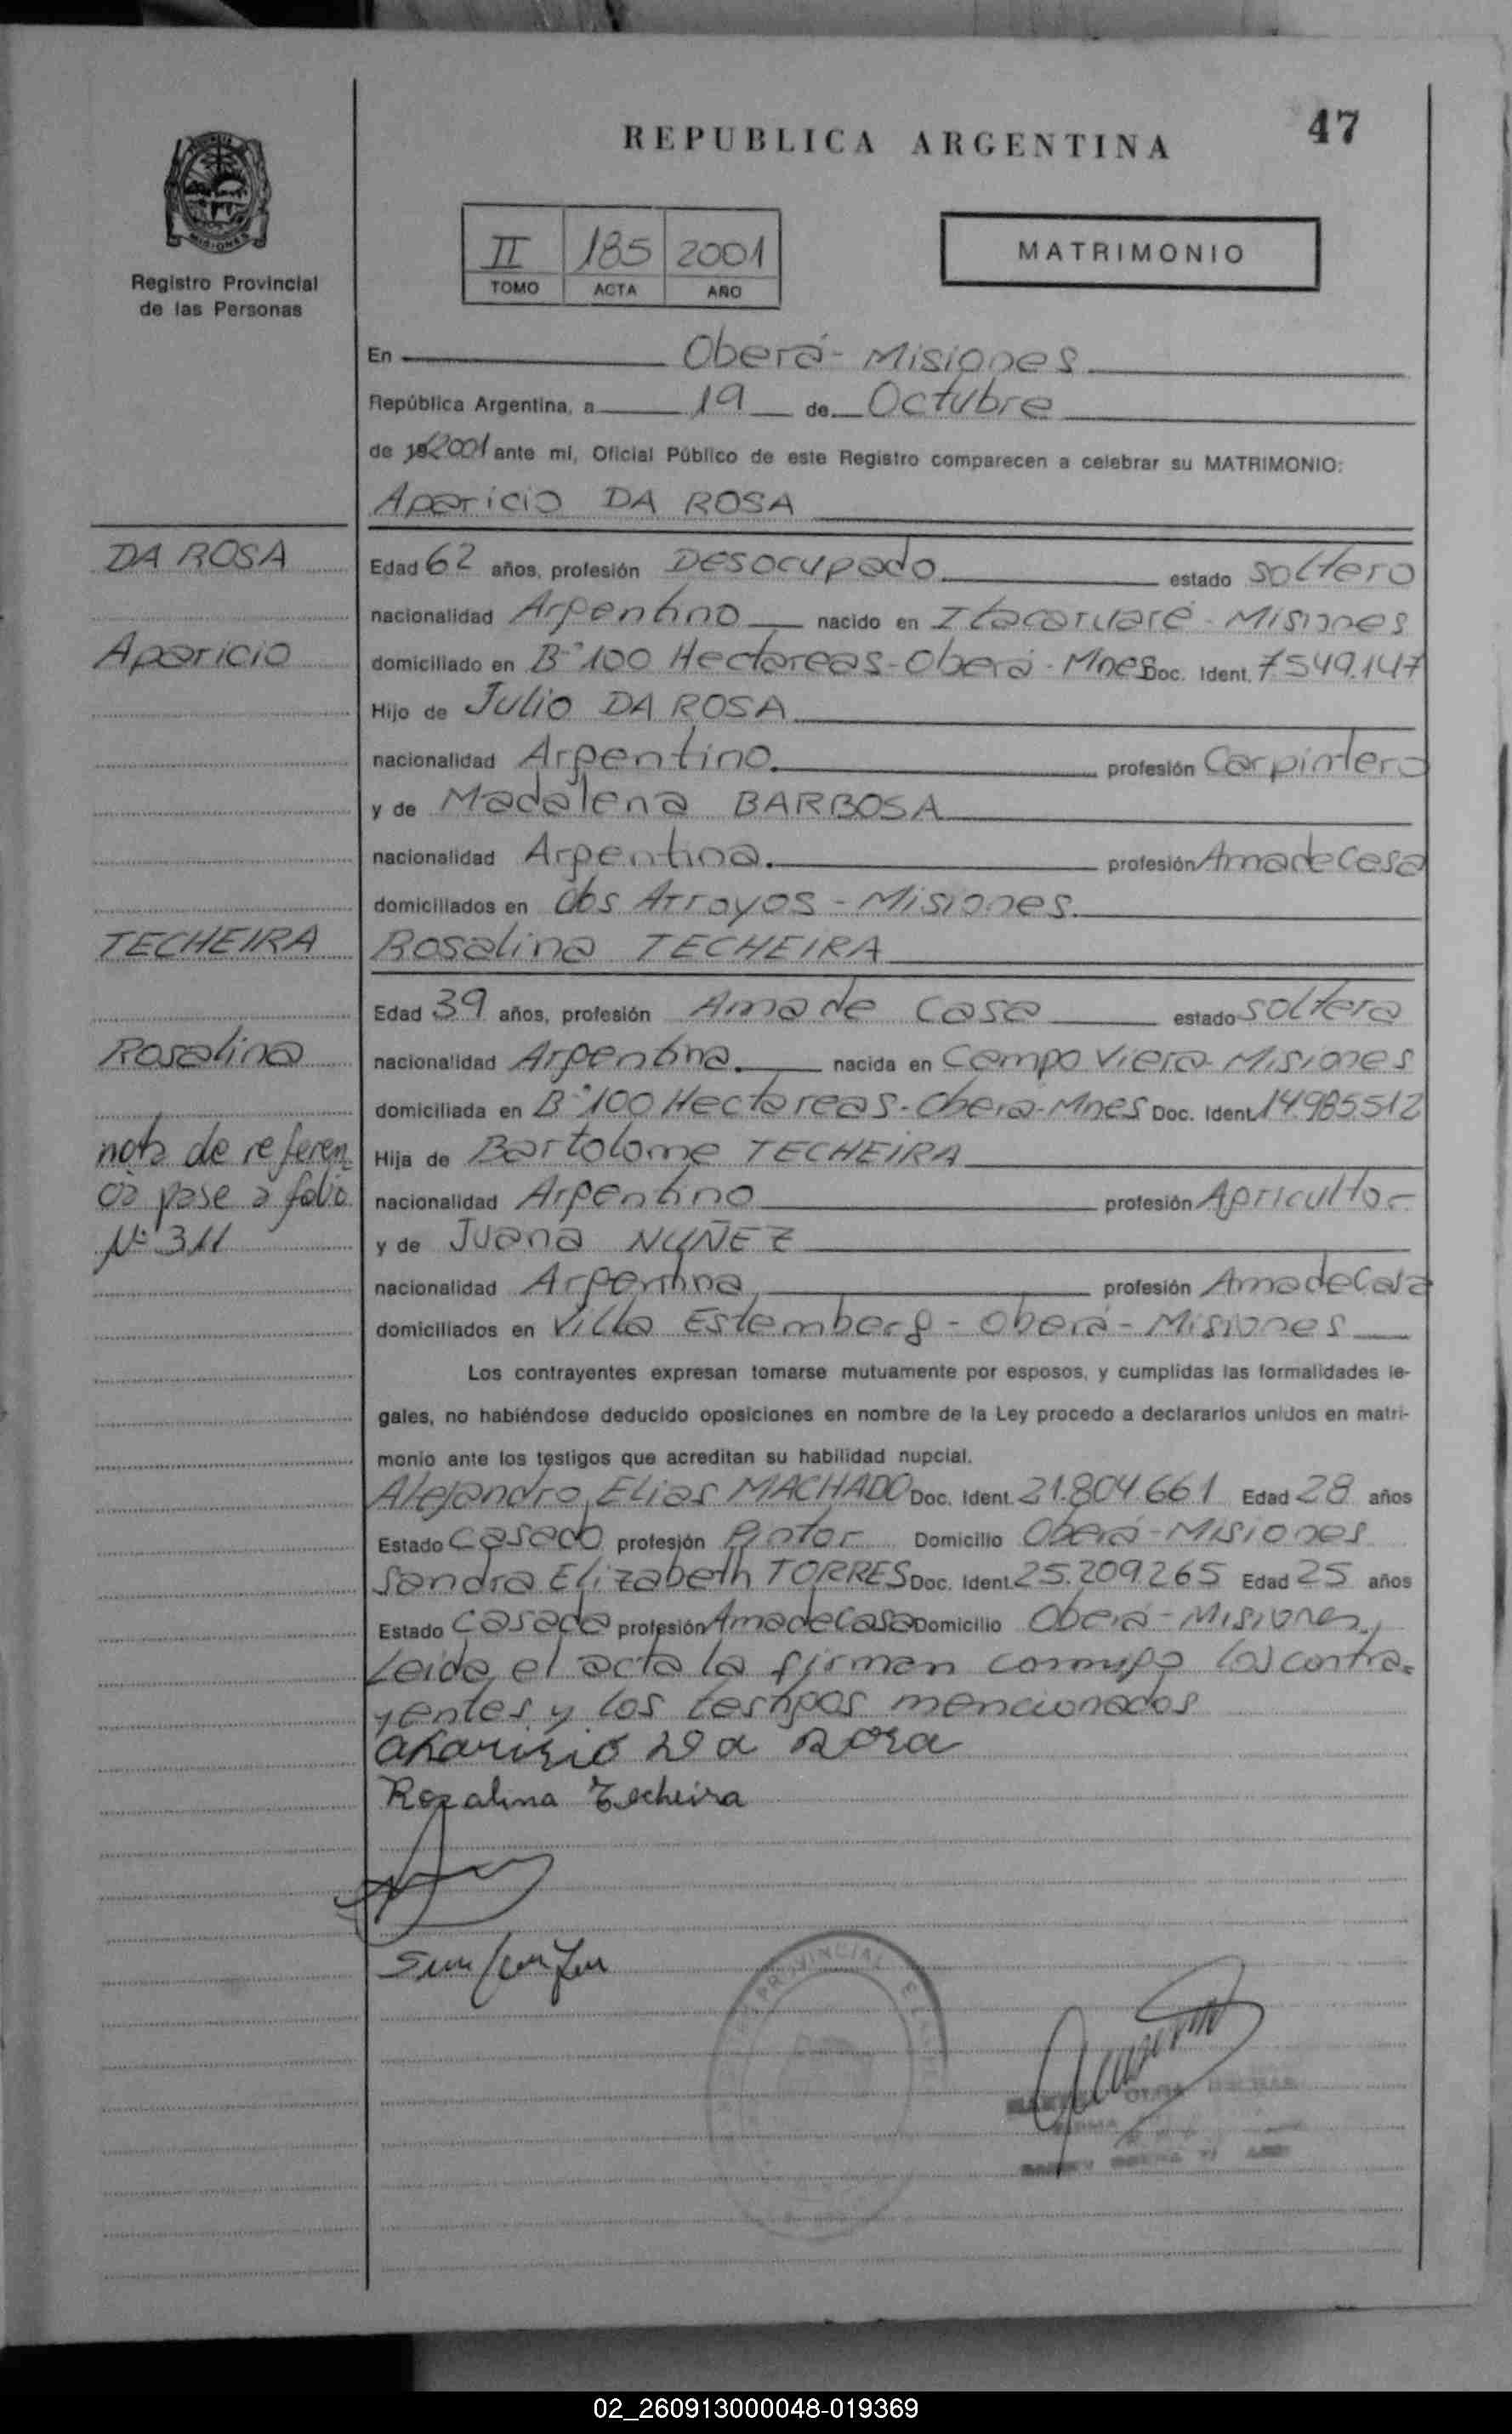 REPUBLICA ARGENTINA
47
MISIONES
Registro Provincial
de las Personas
II 185 2001
TOMO ACTA AÑO
MATRIMONIO
En Oberá - Misiones
República Argentina, a 19 de Octubre
de 19 2001 ante mí, Oficial Público de este Registro comparecen a celebrar su MATRIMONIO:
Aparicio DA ROSA
DA ROSA
Edad 62 años, profesión Desocupado estado soltero
nacionalidad Argentino nacido en Itacaruaré - Misiones
Aparicio
domiciliado en Bº 100 Hectareas - Oberá - Mnes Doc. Ident. 7549.147
Hijo de Julio DA ROSA
nacionalidad Argentino. profesión Carpintero
y de Madalena BARBOSA
nacionalidad Argentina. profesión Ama de Casa
domiciliados en dos Arroyos - Misiones.
TECHEIRA
Rosalina TECHEIRA
Edad 39 años, profesión Ama de Casa estado soltera
Rosalina
nacionalidad Argentina. nacida en Campo Viera - Misiones
domiciliada en Bº 100 Hectareas - Oberá - Mnes Doc. Ident. 14.985512
nota de referen
Hija de Bartolome TECHEIRA
cia pase a folio
nacionalidad Argentino profesión Agricultor
Nº 311
y de Juana NUÑEZ
nacionalidad Argentina profesión Ama de Casa
domiciliados en Villa Estemberg - Oberá - Misiones
Los contrayentes expresan tomarse mutuamente por esposos, y cumplidas las formalidades le-
gales, no habiéndose deducido oposiciones en nombre de la Ley procedo a declararlos unidos en matri-
monio ante los testigos que acreditan su habilidad nupcial.
Alejandro Elias MACHADO Doc. Ident. 21.804.661 Edad 28 años
Estado Casado profesión Pintor Domicilio Oberá - Misiones
Sandra Elizabeth TORRES Doc. Ident. 25.209.265 Edad 25 años
Estado Casada profesión Ama de Casa Domicilio Oberá - Misiones.
Leida el acta la firman conmigo los contra-
yentes y los testigos mencionados
aparisio Da Rosa
Rozalina Techeira
PROVINCIAL
02_260913000048-019369